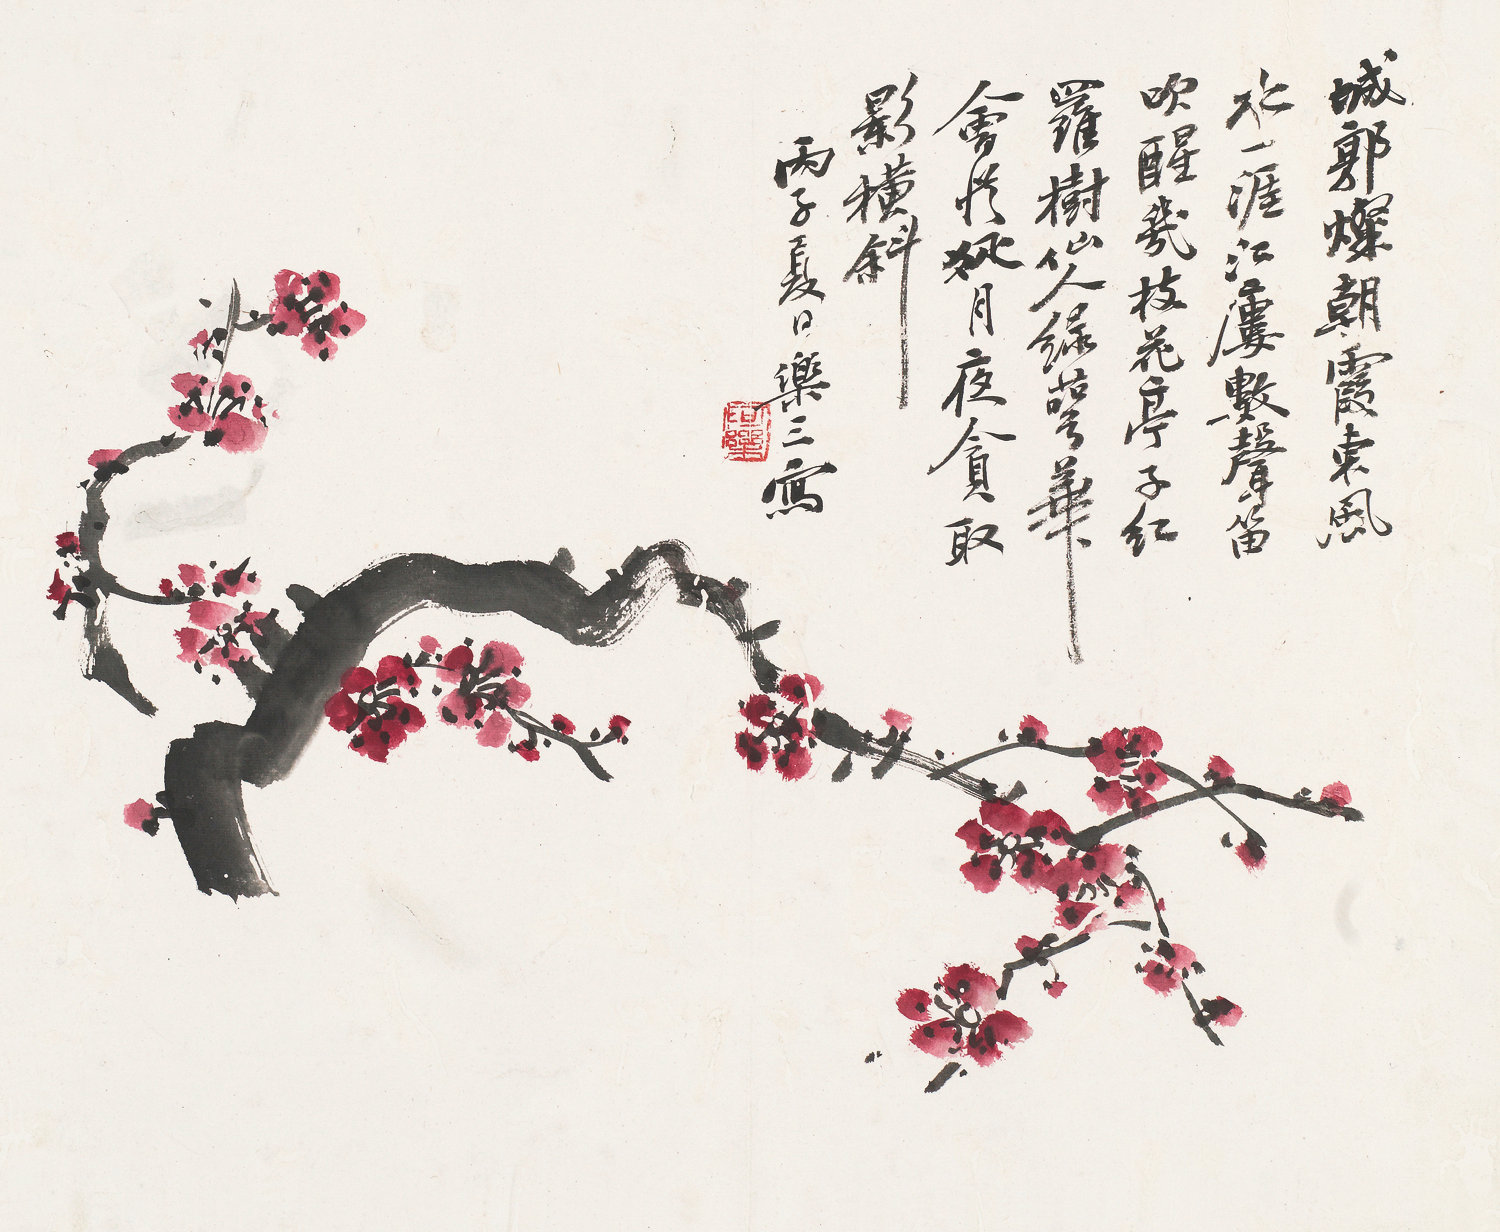 城郭燦朝霞東風
水一涯江廔數聲笛
吹醒幾枝花亭子紅
羅樹仙人綠萼華
會從月夜貪取
影橫斜
丙子夏日樂三寫